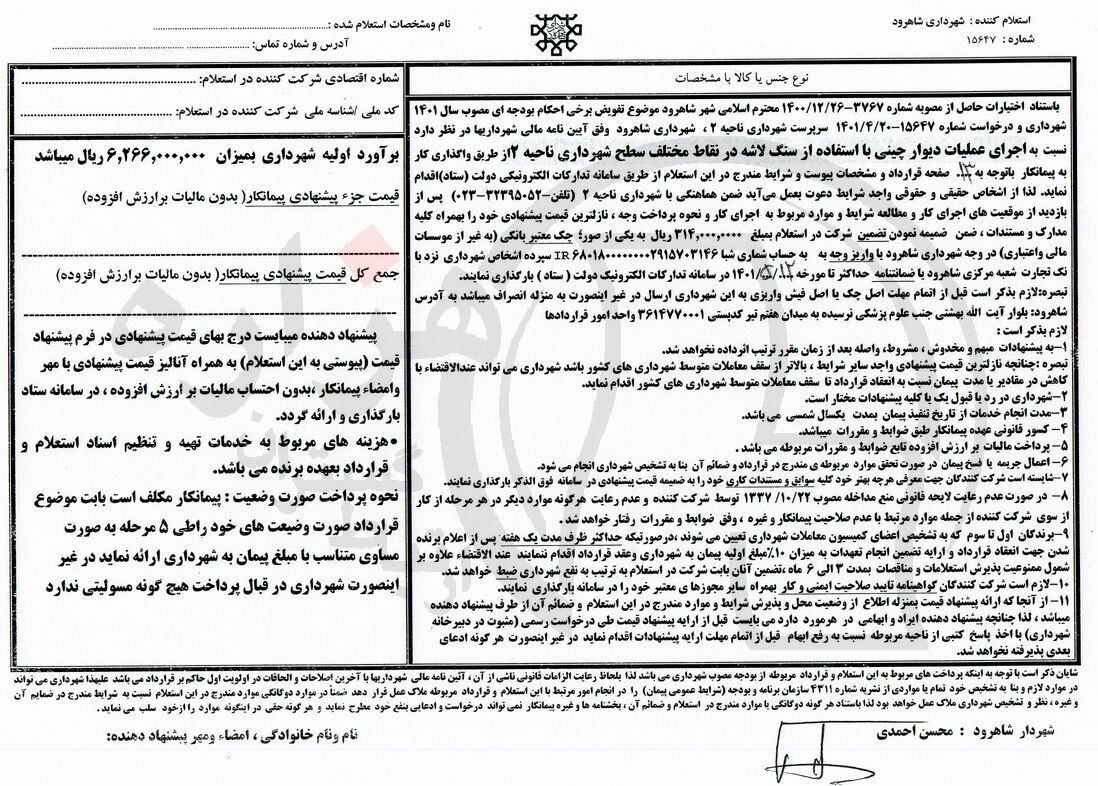 استعلام کننده : شهرداری شاهرود
شماره : ۱۵۶۴۷
نام ومشخصات استعلام شده :
آدرس و شماره تماس:
نوع جنس یا کالا با مشخصات
باستناد اختیارات حاصل از مصوبه شماره ۳۷۶۷-۱۴۰۰/۱۲/۲۶ محترم اسلامی شهر شاهرود موضوع تفویض برخی احکام بودجه ای مصوب سال ۱۴۰۱
شهرداری و درخواست شماره ۱۵۶۴۷-۱۴۰۱/۴/۲۰ سرپرست شهرداری ناحیه ۲ ، شهرداری شاهرود وفق آیین نامه مالی شهرداریها در نظر دارد
نسبت به اجرای عملیات دیوار چینی با استفاده از سنگ لاشه در نقاط مختلف سطح شهرداری ناحیه ۲ از طریق واگذاری کار
به پیمانکار باتوجه به ۱۳ صفحه قرارداد و مشخصات پیوست و شرایط مندرج در این استعلام از طریق سامانه تدارکات الکترونیکی دولت (ستاد)اقدام
نماید. لذا از اشخاص حقیقی و حقوقی واجد شرایط دعوت بعمل می‌آید ضمن هماهنگی با شهرداری ناحیه ۲ (تلفن-۳۲۳۹۵۰۵۲-۰۲۳) پس از
بازدید از موقعیت های اجرای کار و مطالعه شرایط و موارد مربوط به اجرای کار و نحوه پرداخت وجه ، نازلترین قیمت پیشنهادی خود را بهمراه کلیه
مدارک و مستندات ، ضمن ضمیمه نمودن تضمین شرکت در استعلام بمبلغ ۳۱۴,۰۰۰,۰۰۰ ریال به یکی از صور؛ چک معتبر بانکی (به غیر از موسسات
مالی واعتباری) در وجه شهرداری شاهرود یا واریز وجه به به حساب شماری شبا IR ۶۸۰۱۸۰۰۰۰۰۰۰۰۰۲۹۱۵۷۰۳۱۴۶ سپرده اشخاص شهرداری نزد با
نک تجارت شعبه مرکزی شاهرود یا ضمانتنامه حداکثر تا مورخه ۱۴۰۱/۵/۱۲ در سامانه تدارکات الکترونیک دولت ( ستاد ) بارگذاری نمایند.
تبصره:لازم بذکر است قبل از اتمام مهلت اصل چک یا اصل فیش واریزی به این شهرداری ارسال در غیر اینصورت به منزله انصراف میباشد به آدرس
شاهرود: بلوار آیت الله بهشتی جنب علوم پزشکی نرسیده به میدان هفتم تیر کدپستی ۳۶۱۴۷۷۰۰۰۱ واحد امور قراردادها
لازم بذکر است :
۱-به پیشنهادات مبهم و مخدوش ، مشروط، واصله بعد از زمان مقرر ترتیب اثرداده نخواهد شد.
تبصره :چنانچه نازلترین قیمت پیشنهادی واجد سایر شرایط ، بالاتر از سقف معاملات متوسط شهرداری های کشور باشد شهرداری می تواند عندالاقتضاء با
کاهش در مقادیر یا مدت پیمان نسبت به انعقاد قرارداد تا سقف معاملات متوسط شهرداری های کشور اقدام نماید.
۲-شهرداری در رد یا قبول یک یا کلیه پیشنهادات مختار است.
۳-مدت انجام خدمات از تاریخ تنفیذ پیمان بمدت یکسال شمسی می باشد.
۴- کسور قانونی عهده پیمانکار طبق ضوابط و مقررات میباشد.
۵- پرداخت مالیات بر ارزش افزوده تابع ضوابط و مقررات مربوطه می باشد .
۶- اعمال جریمه یا فسخ پیمان در صورت تحقق موارد مربوطه ی مندرج در قرارداد و ضمائم آن بنا به تشخیص شهرداری انجام می شود.
۷-شایسته است شرکت کنندگان جهت معرفی هرچه بهتر خود کلیه سوابق و مستندات کاری خود را به ضمیمه قیمت پیشنهادی در سامانه فوق الذکر بارگذاری نمایند.
۸- در صورت عدم رعایت لایحه قانونی منع مداخله مصوب ۱۳۳۷/۱۰/۲۲ توسط شرکت کننده و عدم رعایت هرگونه موارد دیگر در هر مرحله از کار
از سوی شرکت کننده از جمله موارد مرتبط با عدم صلاحیت پیمانکار و غیره ، وفق ضوابط و مقررات رفتار خواهد شد .
۹-برندگان اول تا سوم که به تشخیص اعضای کمیسیون معاملات شهرداری تعیین می شوند ،درصورتیکه حداکثر ظرف مدت یک هفته پس از اعلام برنده
شدن جهت انعقاد قرارداد و ارایه تضمین انجام تعهدات به میزان ۱۰%مبلغ اولیه پیمان به شهرداری وعقد قرارداد اقدام ننمایند عند الاقتضاء علاوه بر
شمول ممنوعیت پذیرش استعلامات و مناقصات بمدت ۳ الی ۶ ماه ،تضمین آنان بابت شرکت در استعلام به ترتیب به نفع شهرداری ضبط خواهد شد.
۱۰-لازم است شرکت کنندگان گواهینامه تایید صلاحیت ایمنی و کار بهمراه سایر مجوزهای معتبر خود را در سامانه بارگذاری نمایند.
۱۱- از آنجا که ارائه پیشنهاد قیمت بمنزله اطلاع از وضعیت محل و پذیرش شرایط و موارد مندرج در این استعلام و ضمائم آن از طرف پیشنهاد دهنده
میباشد ، لذا چنانچه پیشنهاد دهنده ایراد و ابهامی در هرمورد دارد می بایست قبل از ارایه پیشنهاد قیمت طی درخواست رسمی (مثبوت در دبیرخانه
شهرداری) با اخذ پاسخ کتبی از ناحیه مربوطه نسبت به رفع ابهام قبل از اتمام مهلت ارایه پیشنهادات اقدام نماید در غیر اینصورت هر گونه ادعای
بعدی پذیرفته نخواهد شد.
شماره اقتصادی شرکت کننده در استعلام:
کد ملی /شناسه ملی شرکت کننده در استعلام:
برآورد اولیه شهرداری بمیزان ۶,۲۶۶,۰۰۰,۰۰۰ ریال میباشد
قیمت جزء پیشنهادی پیمانکار( بدون مالیات برارزش افزوده)
جمع کل قیمت پیشنهادی پیمانکار( بدون مالیات برارزش افزوده)
پیشنهاد دهنده میبایست درج بهای قیمت پیشنهادی در فرم پیشنهاد
قیمت (پیوستی به این استعلام) به همراه آنالیز قیمت پیشنهادی با مهر
وامضاء پیمانکار ،بدون احتساب مالیات بر ارزش افزوده ، در سامانه ستاد
بارگذاری و ارائه گردد.
•هزینه های مربوط به خدمات تهیه و تنظیم اسناد استعلام و
قرارداد بعهده برنده می باشد.
نحوه پرداخت صورت وضعیت : پیمانکار مکلف است بابت موضوع
قرارداد صورت وضیعت های خود راطی ۵ مرحله به صورت
مساوی متناسب با مبلغ پیمان به شهرداری ارائه نماید در غیر
اینصورت شهرداری در قبال پرداخت هیچ گونه مسولیتی ندارد
شایان ذکر است با توجه به اینکه پرداخت های مربوط به این استعلام و قرارداد مربوطه از بودجه مصوب شهرداری می باشد لذا بلحاظ رعایت الزامات قانونی ناشی از آن ، آئین نامه مالی شهرداریها با آخرین اصلاحات و الحاقات در اولویت اول حاکم بر قرارداد می باشد علیهذا شهرداری می تواند
در موارد لازم و بنا به تشخیص خود تمام یا مواردی از نشریه شماره ۴۳۱۱ سازمان برنامه و بودجه (شرایط عمومی پیمان) را در انجام امور مرتبط با این استعلام و قرارداد مربوطه ملاک عمل قرار دهد ضمناً در موارد دوگانگی موارد مندرج در این استعلام نسبت به شرایط مندرج در ضمایم آن
و غیره ، نظر و تشخیص شهرداری ملاک عمل خواهد بود لذا باستناد هر گونه دوگانگی با موارد مندرج در استعلام و ضمائم آن ، بخشنامه ها و غیره پیمانکار نمی تواند درخواست و ادعایی بنفع خود مطرح نماید و هر گونه حقی در اینگونه موارد را ازخود سلب می نماید .
شهردار شاهرود : محسن احمدی
نام ونام خانوادگی ، امضاء ومهر پیشنهاد دهنده: